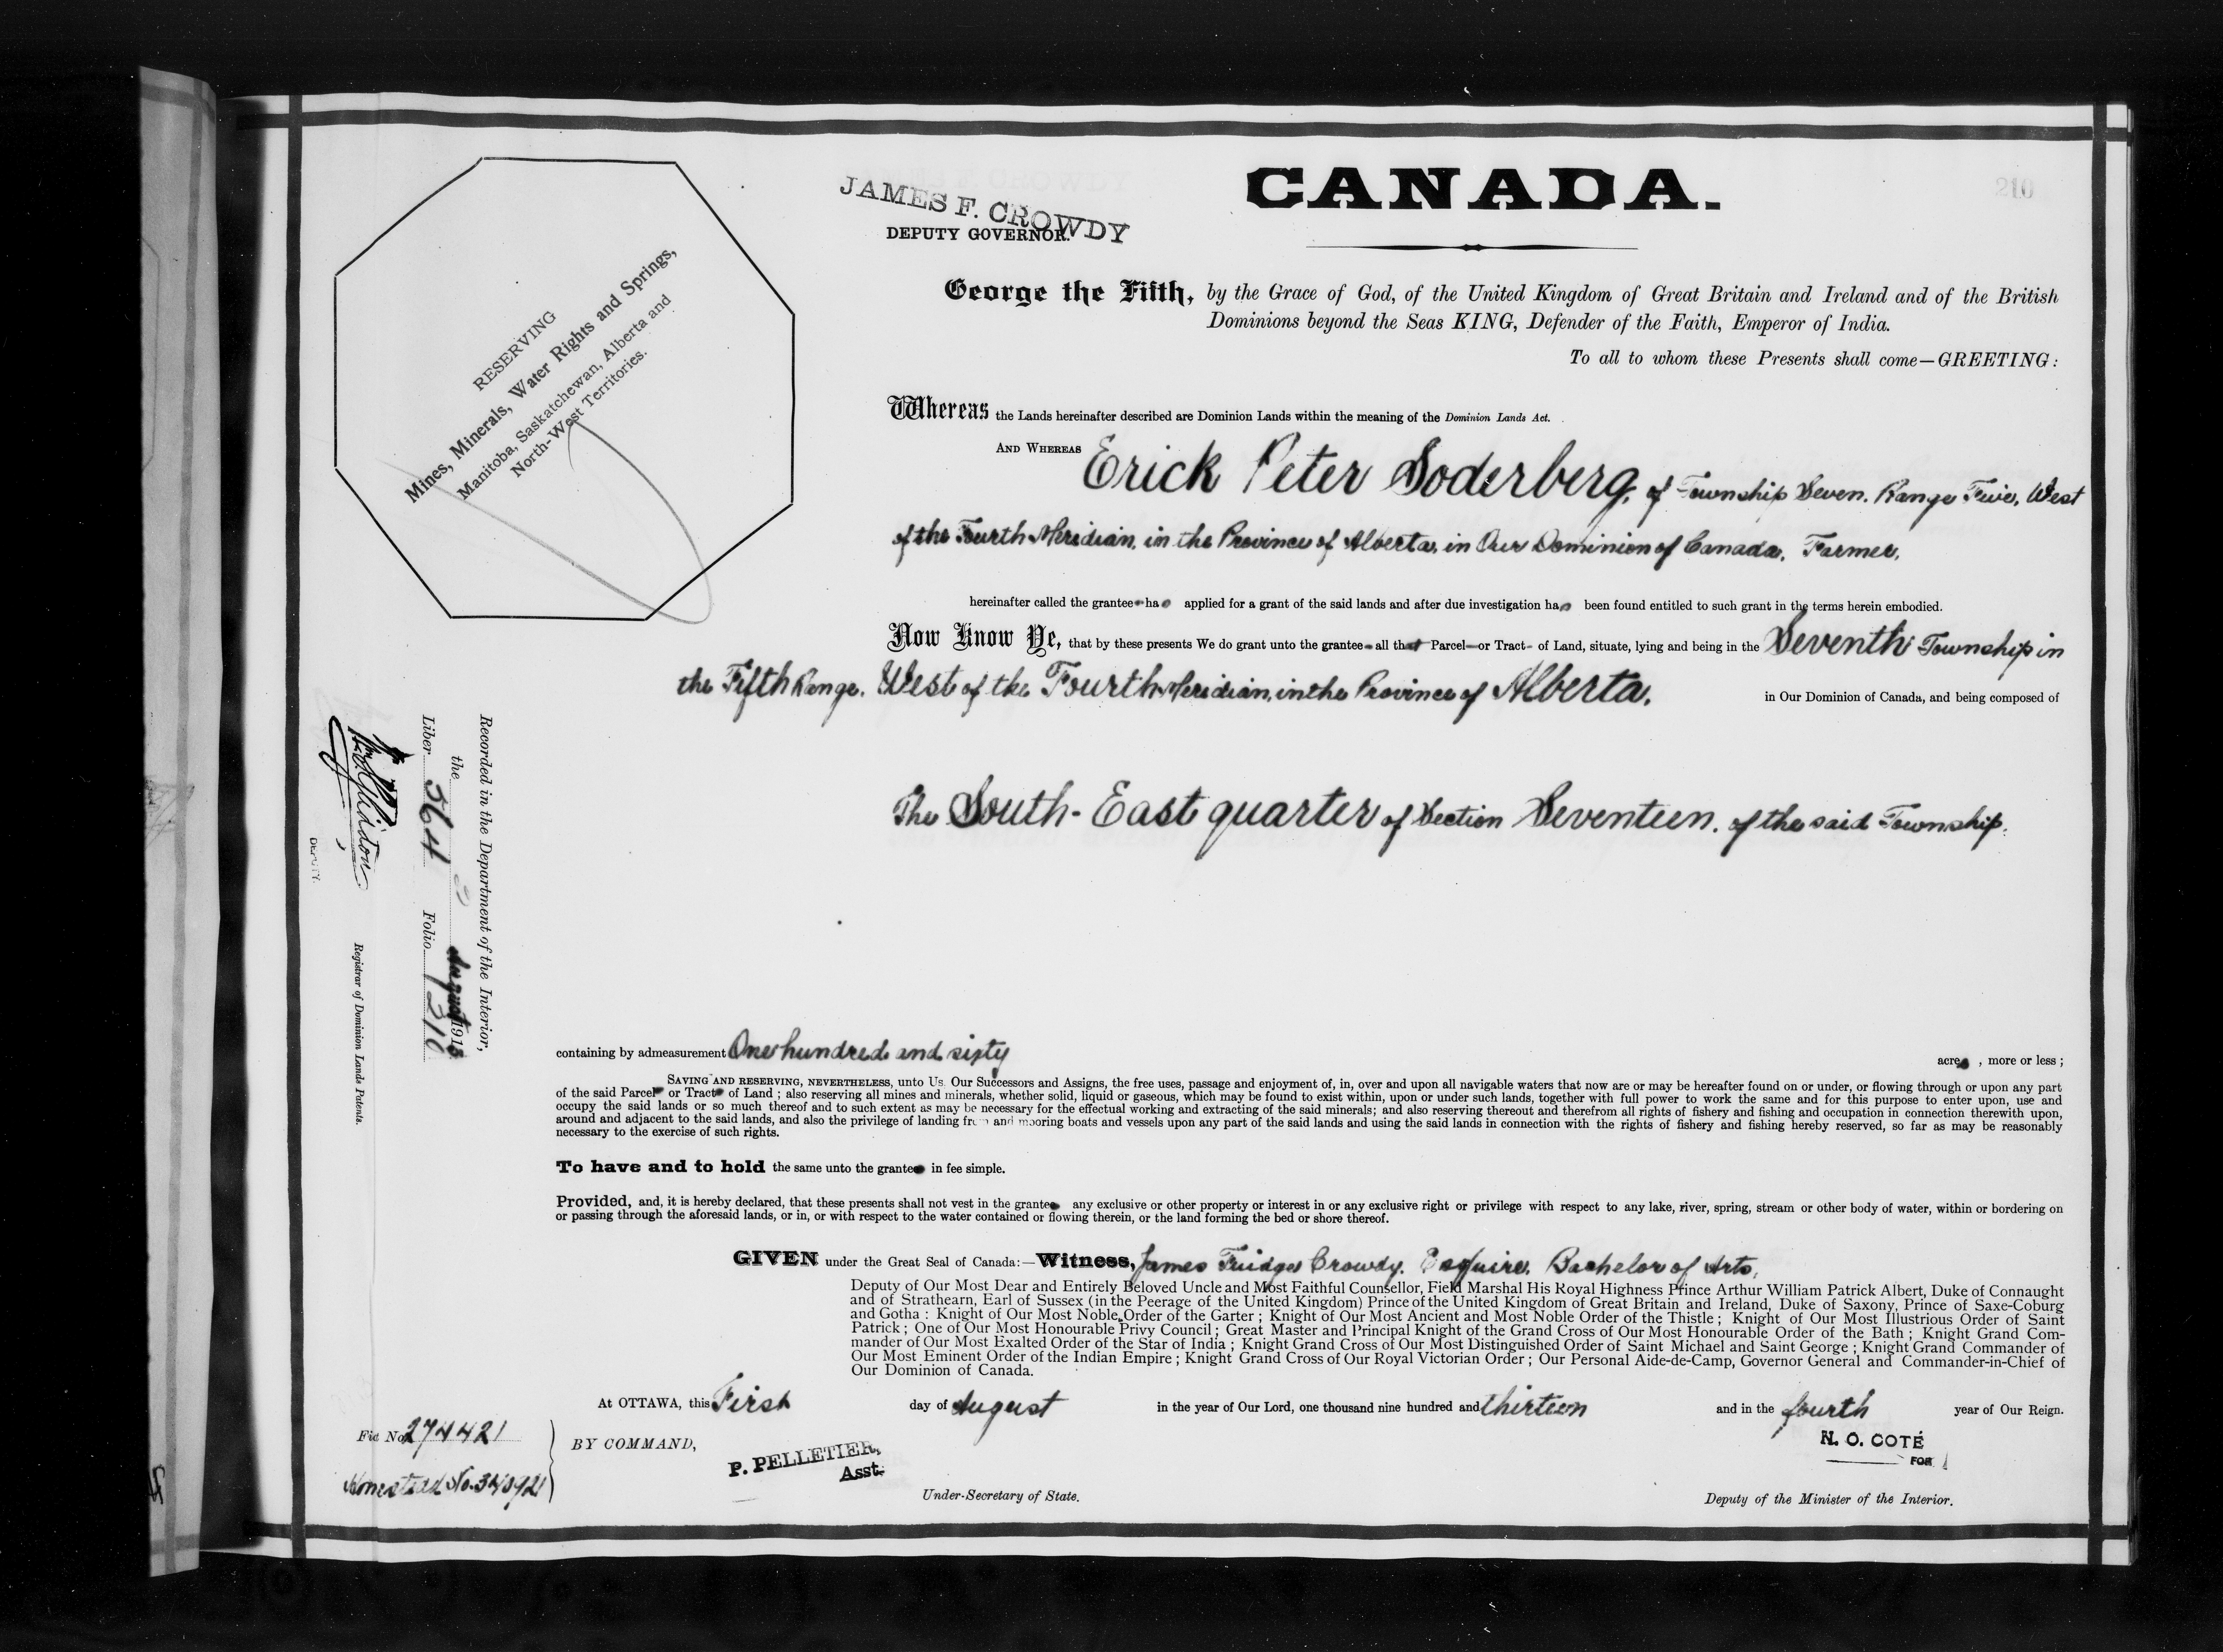 CANADA.
210
JAMES F. CROWDY
DEPUTY GOVERNOR.
RESERVING
Mines, Minerals, Water Rights and Springs,
Manitoba, Saskatchewan, Alberta and
North-West Territories.
George the Fifth, by the Grace of God, of the United Kingdom of Great Britain and Ireland and of the British
Dominions beyond the Seas KING, Defender of the Faith, Emperor of India.
To all to whom these Presents shall come—GREETING:
Whereas the Lands hereinafter described are Dominion Lands within the meaning of the Dominion Lands Act.
AND WHEREAS Erick Peter Soderberg, of Township Seven, Range Five, West
of the Fourth Meridian, in the Province of Alberta, in Our Dominion of Canada, Farmer,
hereinafter called the grantee has applied for a grant of the said lands and after due investigation has been found entitled to such grant in the terms herein embodied.
Now Know Ye, that by these presents We do grant unto the grantee all that Parcel or Tract of Land, situate, lying and being in the Seventh Township in
the Fifth Range, West of the Fourth Meridian, in the Province of Alberta, in Our Dominion of Canada, and being composed of
The South-East quarter of Section Seventeen, of the said Township.
Recorded in the Department of the Interior,
the August 1913
Liber 564 Folio 210
Registrar of Dominion Lands Patents.
DEPUTY.
containing by admeasurement One hundred and sixty acres, more or less;
SAVING AND RESERVING, NEVERTHELESS, unto Us, Our Successors and Assigns, the free uses, passage and enjoyment of, in, over and upon all navigable waters that now are or may be hereafter found on or under, or flowing through or upon any part
of the said Parcel or Tract of Land; also reserving all mines and minerals, whether solid, liquid or gaseous, which may be found to exist within, upon or under such lands, together with full power to work the same and for this purpose to enter upon, use and
occupy the said lands or so much thereof and to such extent as may be necessary for the effectual working and extracting of the said minerals; and also reserving thereout and therefrom all rights of fishery and fishing and occupation in connection therewith upon,
around and adjacent to the said lands, and also the privilege of landing from and mooring boats and vessels upon any part of the said lands and using the said lands in connection with the rights of fishery and fishing hereby reserved, so far as may be reasonably
necessary to the exercise of such rights.
To have and to hold the same unto the grantee in fee simple.
Provided, and, it is hereby declared, that these presents shall not vest in the grantee any exclusive or other property or interest in or any exclusive right or privilege with respect to any lake, river, spring, stream or other body of water, within or bordering on
or passing through the aforesaid lands, or in, or with respect to the water contained or flowing therein, or the land forming the bed or shore thereof.
GIVEN under the Great Seal of Canada:—Witness, James Crowdy, Esquire, Bachelor of Arts,
Deputy of Our Most Dear and Entirely Beloved Uncle and Most Faithful Counsellor, Field Marshal His Royal Highness Prince Arthur William Patrick Albert, Duke of Connaught
and of Strathearn, Earl of Sussex (in the Peerage of the United Kingdom) Prince of the United Kingdom of Great Britain and Ireland, Duke of Saxony, Prince of Saxe-Coburg
and Gotha: Knight of Our Most Noble Order of the Garter; Knight of Our Most Ancient and Most Noble Order of the Thistle; Knight of Our Most Illustrious Order of Saint
Patrick; One of Our Most Honourable Privy Council; Great Master and Principal Knight of the Grand Cross of Our Most Honourable Order of the Bath; Knight Grand Com-
mander of Our Most Exalted Order of the Star of India; Knight Grand Cross of Our Most Distinguished Order of Saint Michael and Saint George; Knight Grand Commander of
Our Most Eminent Order of the Indian Empire; Knight Grand Cross of Our Royal Victorian Order; Our Personal Aide-de-Camp, Governor General and Commander-in-Chief of
Our Dominion of Canada.
At OTTAWA, this First day of August in the year of Our Lord, one thousand nine hundred and thirteen and in the fourth year of Our Reign.
File No. 274421
BY COMMAND,
P. PELLETIER,
Asst.
N. O. COTÉ
FOR
Homestead No.
Under-Secretary of State.
Deputy of the Minister of the Interior.